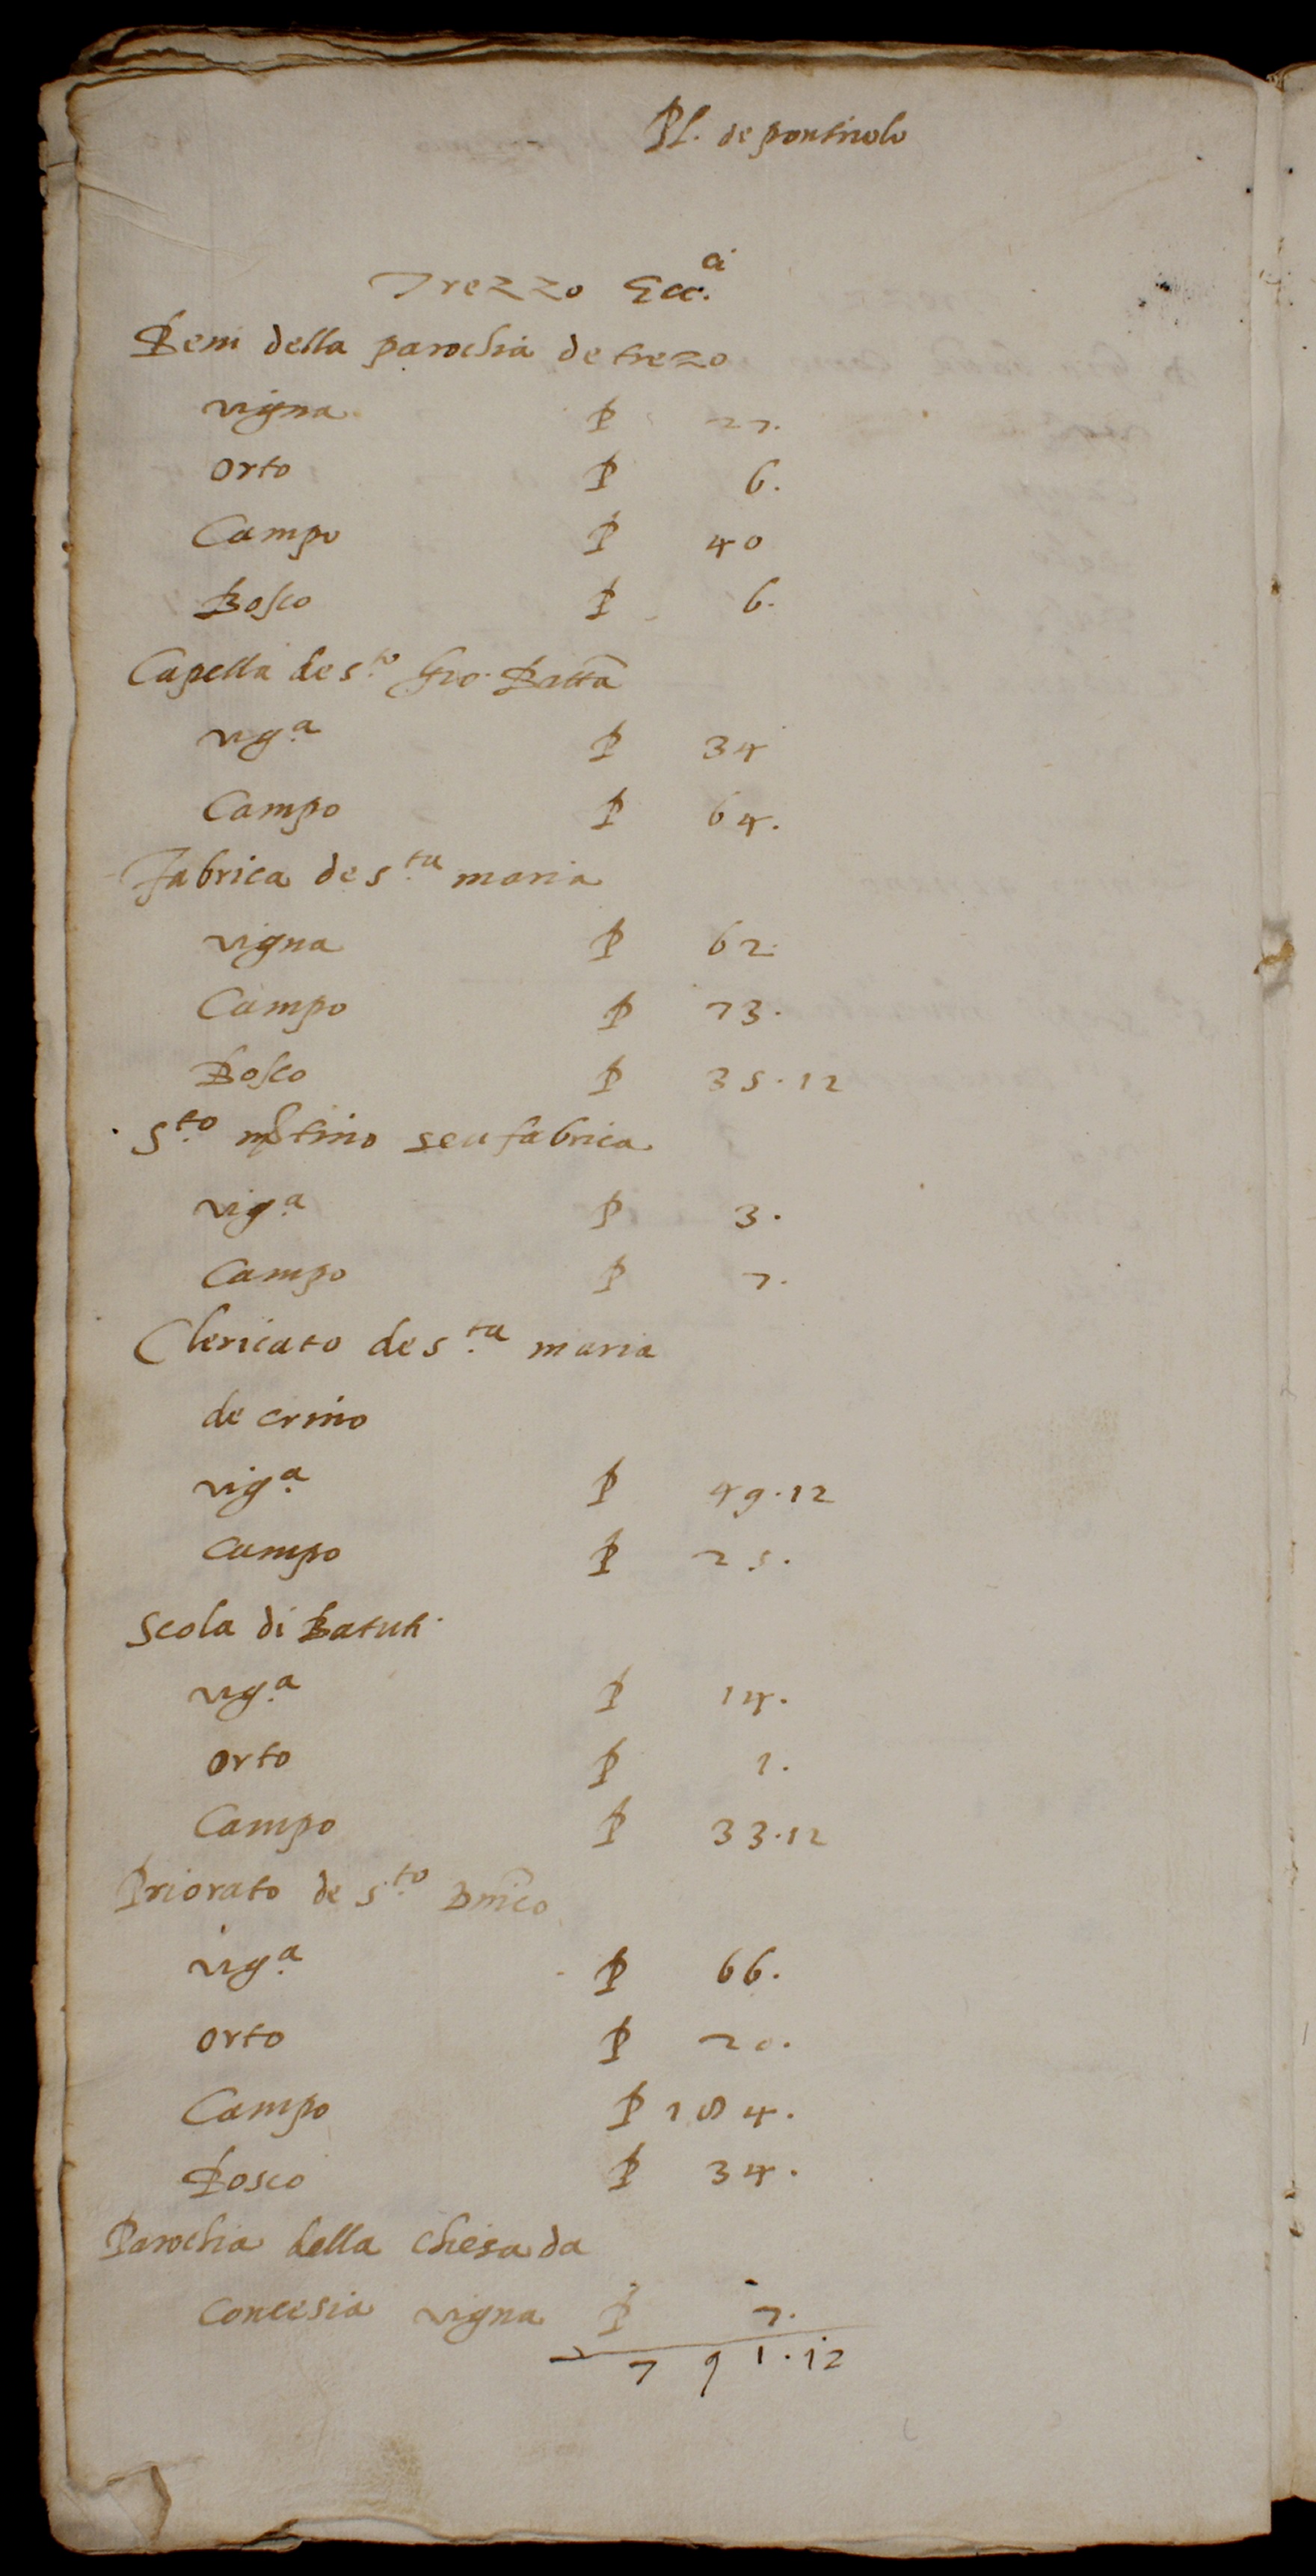 Pl. de pontirolo
Trezzo Ecc.ci
Beni della parochia de trezo
vigna P 27.
orto P 6.
Campo P 40
Bosco P 6.
Capella de s.to Gio. Batta
vig.a P 34
Campo P 64.
Fabrica de s.ta maria
vigna P 62.
Campo P 73.
Bosco P 35.12
S.to mrtino seu fabrica
vig.a P 3.
Campo P 7.
Clericato de s.ta maria
de crino
vig.a P 49.12
Campo P 25.
Scola di Batuti
vig.a P 14.
orto P 1.
Campo P 33.12
Priorato de s.to Dnico
vig.a P 66.
orto P 20.
Campo P 184.
Bosco P 34.
Parochia della chiesa da
concesia vigna P 7.
791.12